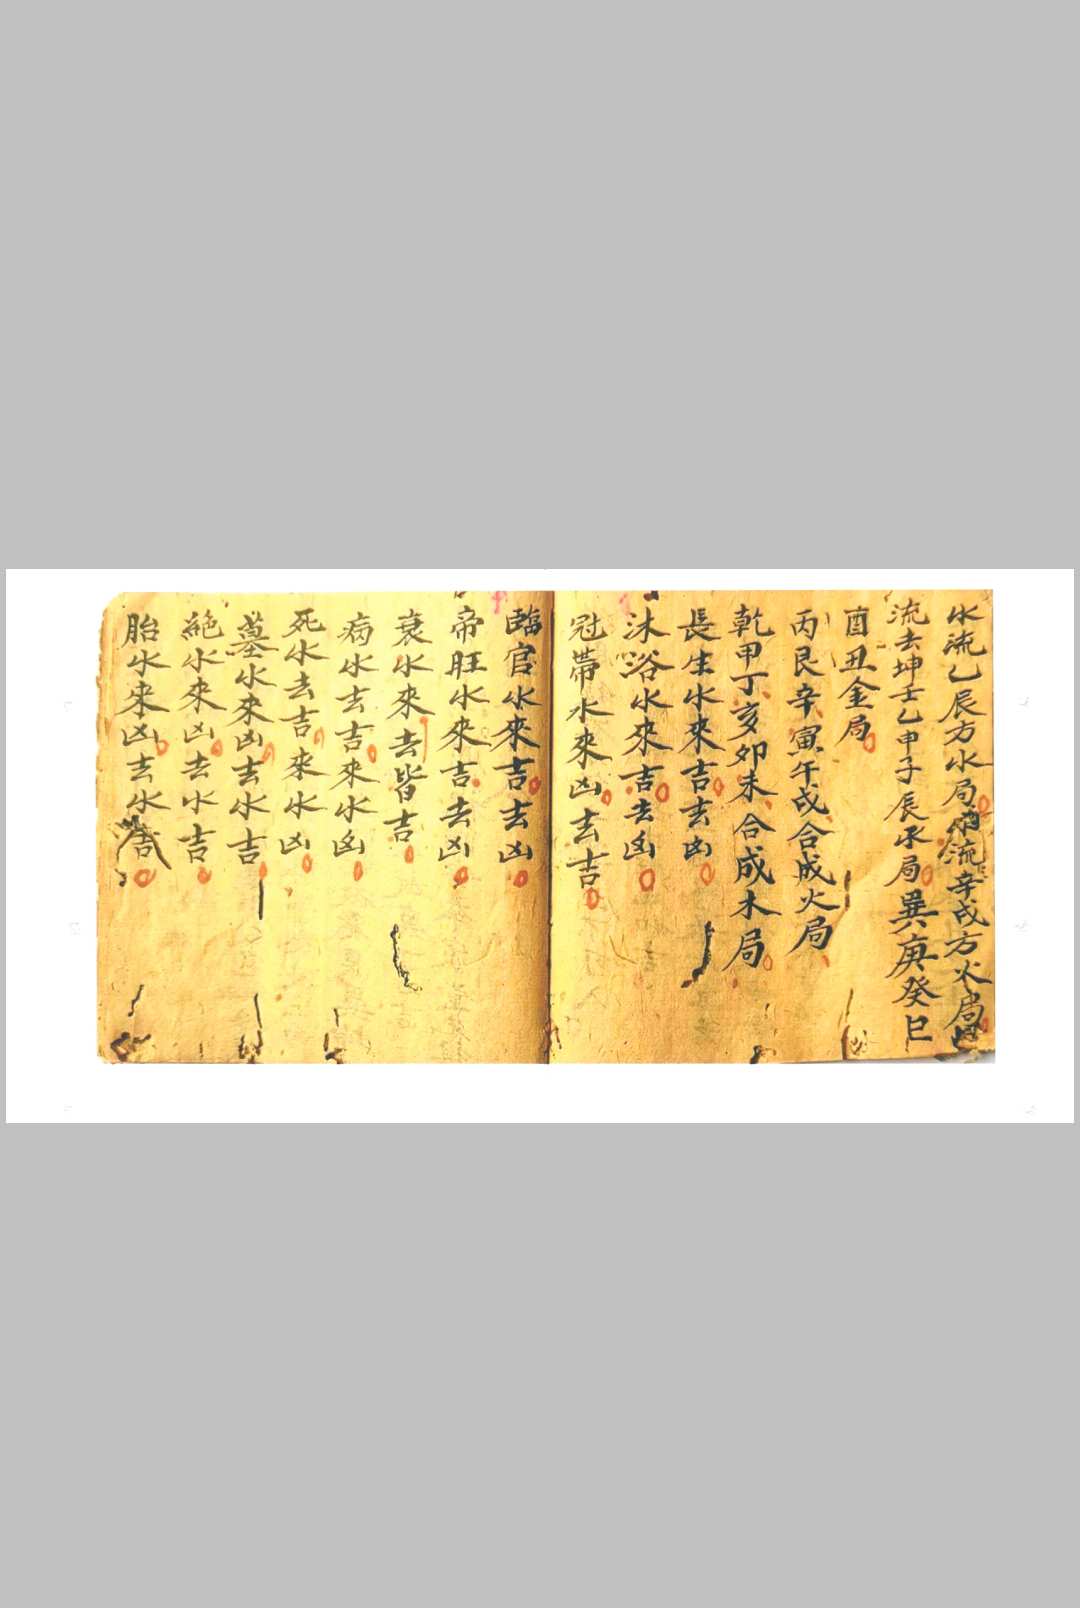 水流乙辰方水局消流辛戌方火局
流去坤壬乙申子辰水局巽庚癸巳
酉丑金局
丙艮辛寅午戌合成火局
乾甲丁亥卯未合成木局
長生水來吉去凶
沐浴水來吉去凶
冠帶水來凶去吉
臨官水來吉去凶
帝旺水來吉去凶
衰水來去皆吉
病水去吉來水凶
死水去吉來水凶
墓水來凶去水吉
絕水來凶去水吉
胎水來凶去水吉